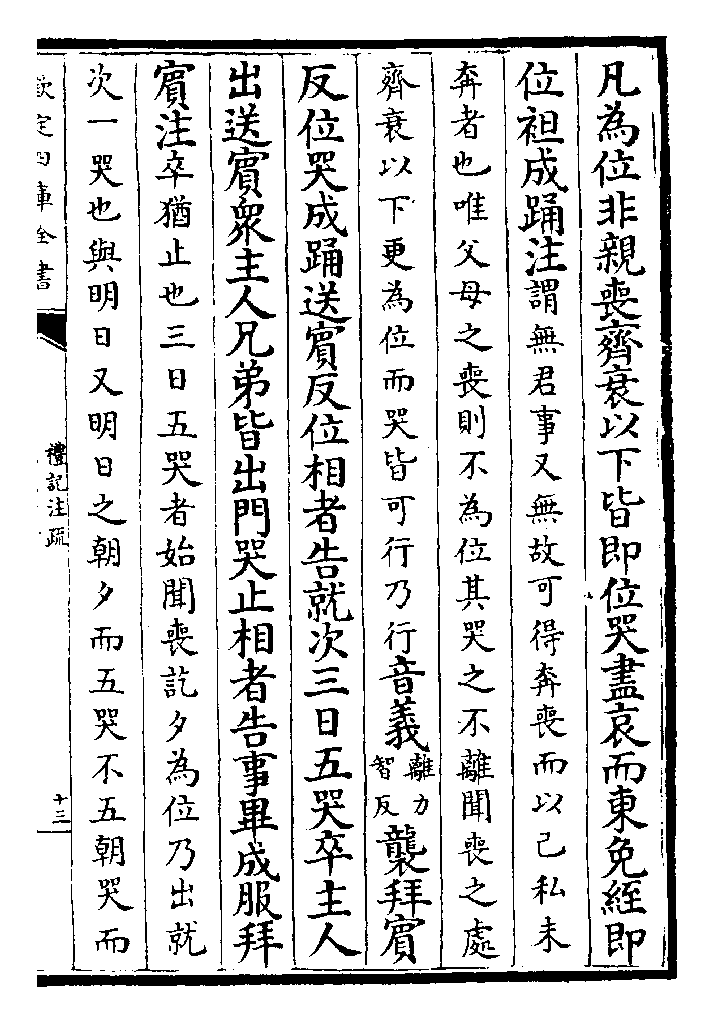 凡為位非親喪齊衰以下皆即位哭盡哀而東免絰即
位袒成踊注謂無君事又無故可得奔喪而以己私未
奔者也唯父母之喪則不為位其哭之不離聞喪之處
齊衰以下更為位而哭皆可行乃行音義離力智反襲拜賓
反位哭成踊送賓反位相者告就次三日五哭卒主人
出送賓衆主人兄弟皆出門哭止相者告事畢成服拜
賓注卒猶止也三日五哭者始聞喪訖夕為位乃出就
次一哭也與明日又明日之朝夕而五哭不五朝哭而
欽定四庫全書
禮記注疏
十三